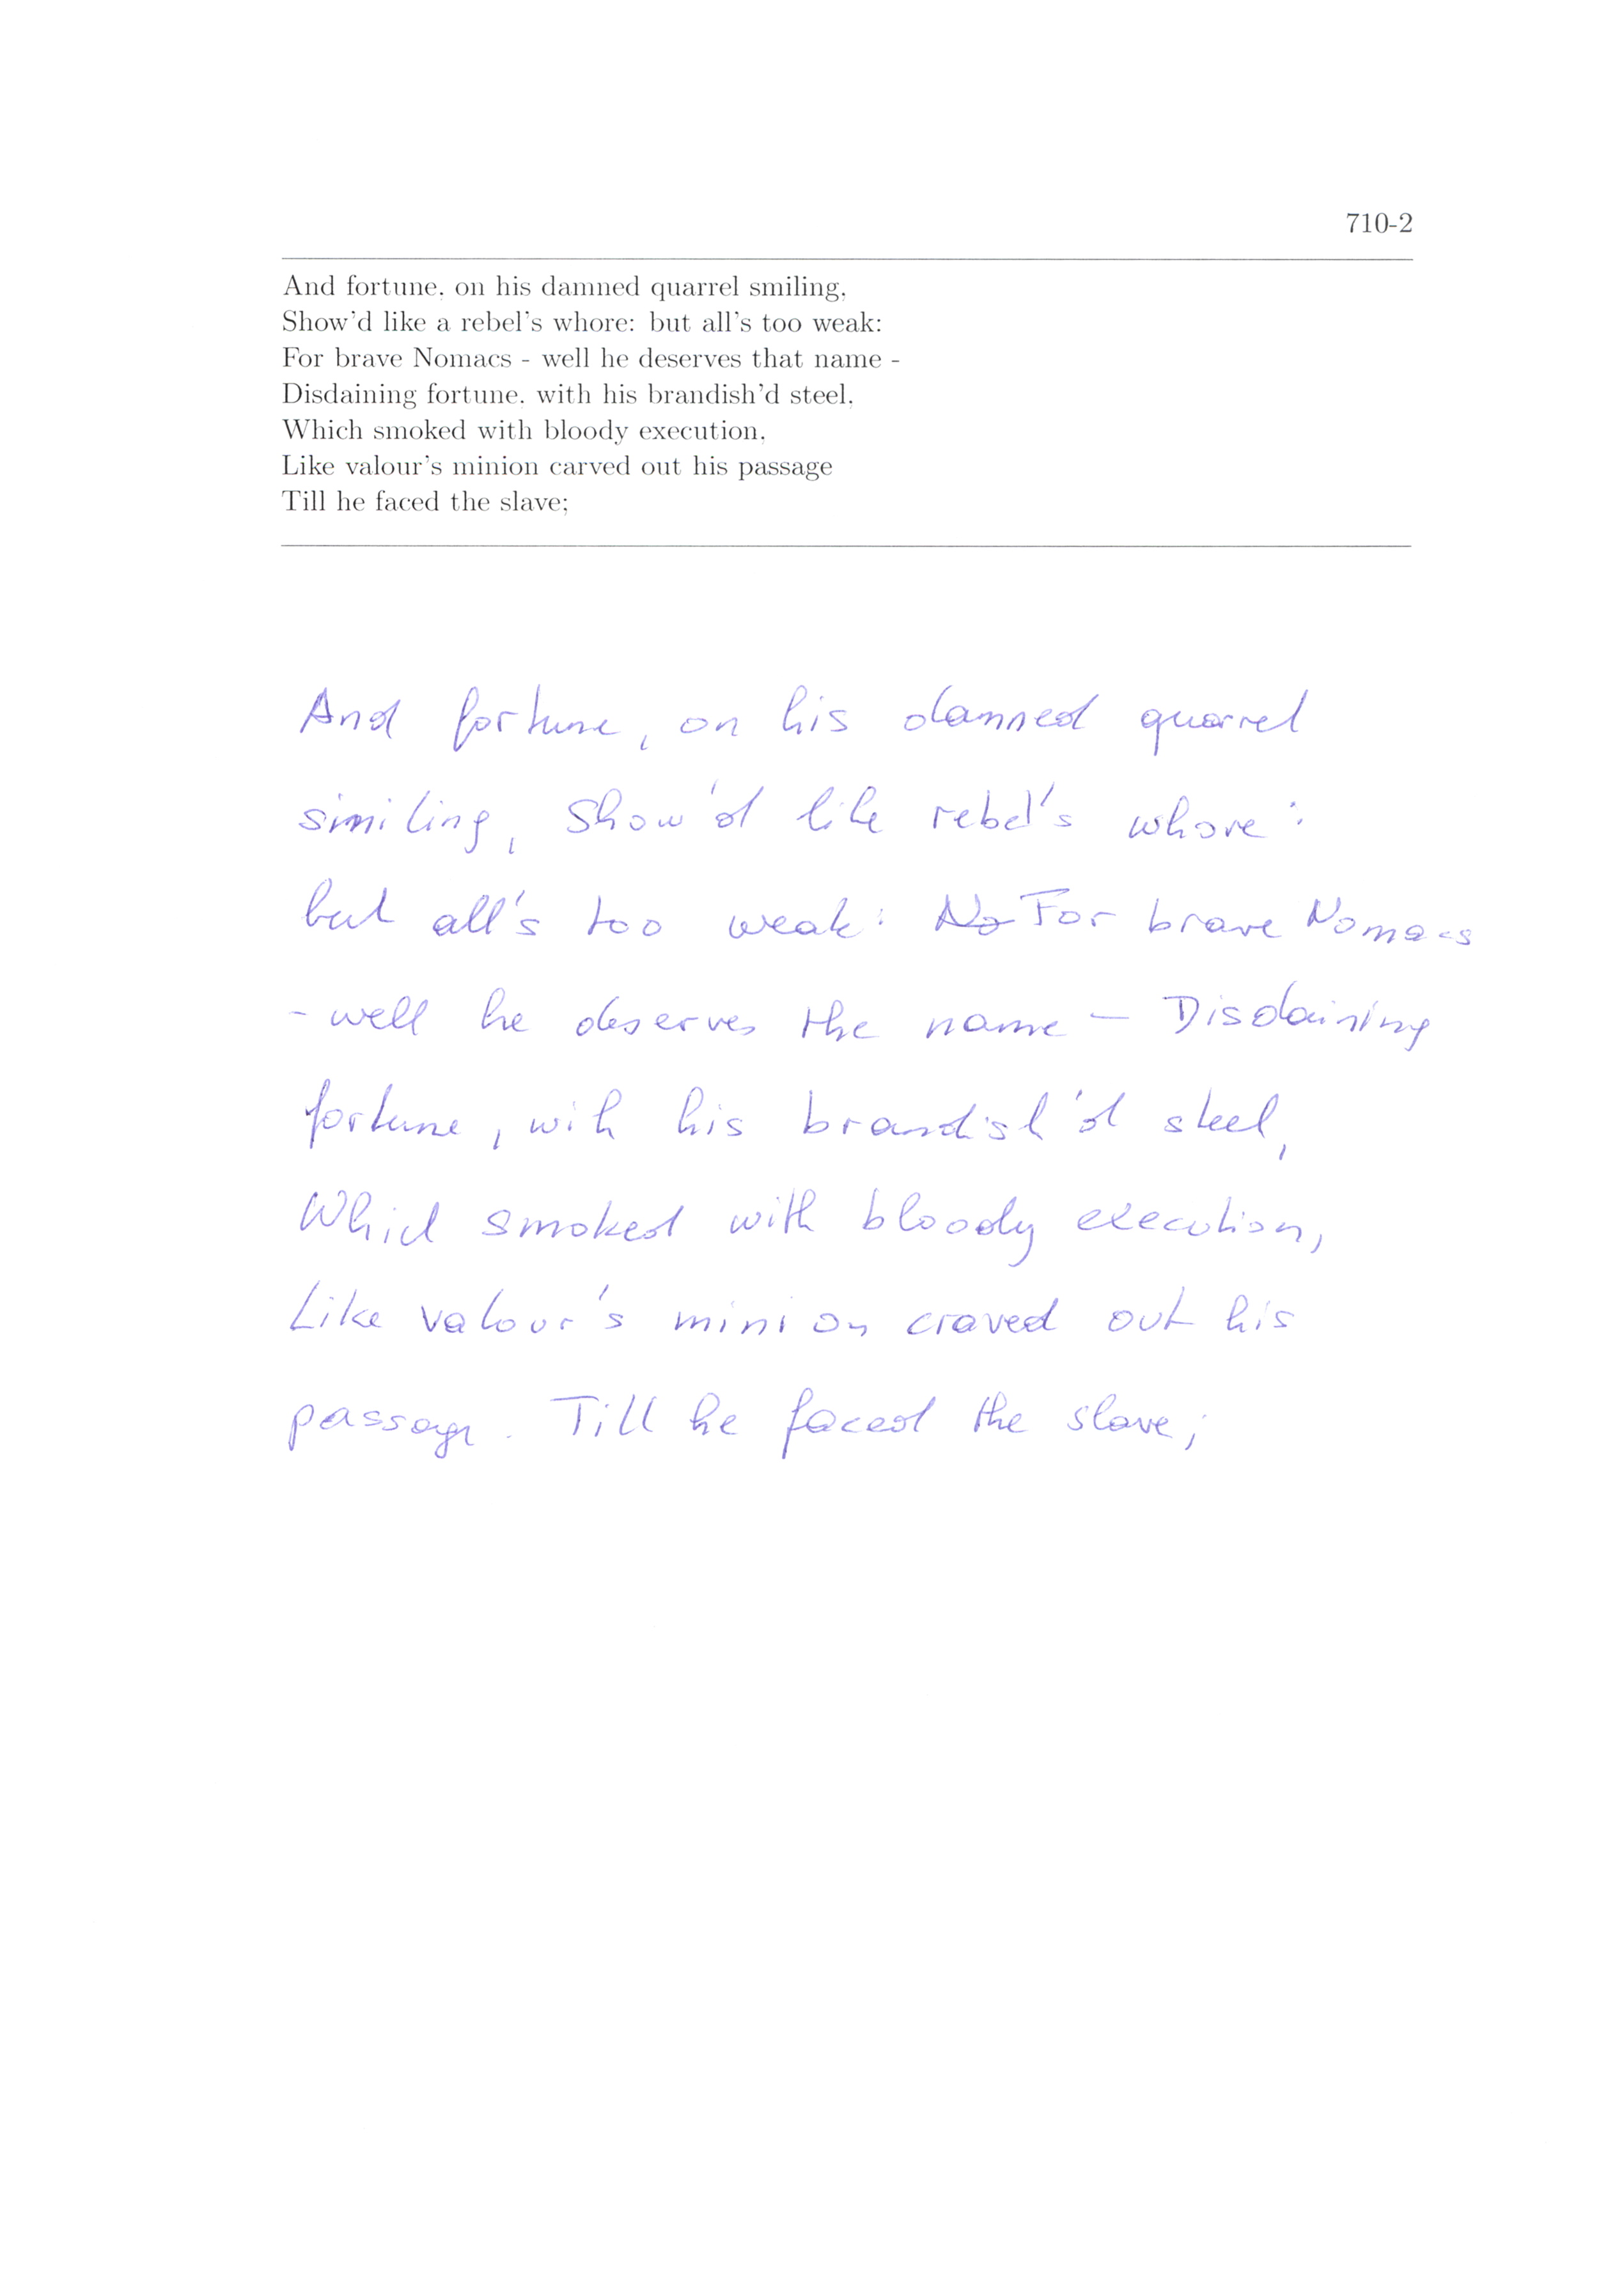 710-2
And fortune, on his damned quarrel smiling,
Show'd like a rebel's whore: but all's too weak:
For brave Nomacs - well he deserves that name -
Disdaining fortune, with his brandish'd steel,
Which smoked with bloody execution,
Like valour's minion carved out his passage
Till he faced the slave;
And fortune, on his damned quarrel
similing, Show'd like rebel's whore:
but all's too weak: No For brave Nomacs
- well he deserves the name - Disdaining
fortune, with his brandish'd steel,
Which smoked with bloody execution,
Like valour's minion craved out his
passage. Till he faced the slave;